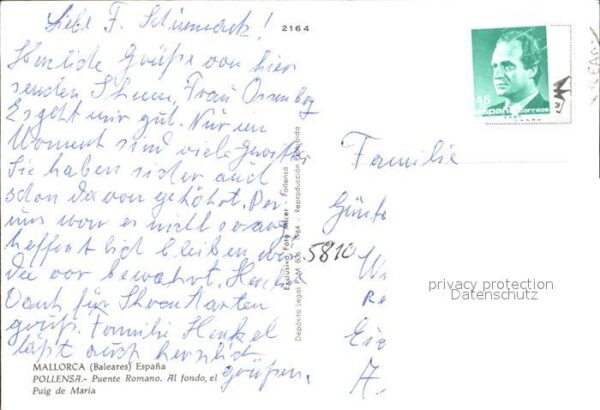 Liebe F. Schürmack!
Herzliche Grüße von hier
senden Ihnen, Frau Ossenberg
Es geht mir gut. Nur im
Moment sind viele Gewitter
Sie haben sicher auch
schon davon gehöhrt. Bei
uns war es nicht so arg
hoffentlich bleiben wir
da vor bewahrt. Herzl.
Dank für Ihren Karten
gruß. Familie Henkel
läßt auch herzlich
grüßen.
2164
45
España correos
Familie
Günte
5810
W
Re
Ei
A.
Exclusiva Foto Micer - Pollensa
Depósito Legal P.M. 1984 - Reproducción Prohibida
privacy protection
Datenschutz
MALLORCA (Baleares) España
POLLENSA.- Puente Romano. Al fondo, el
Puig de María